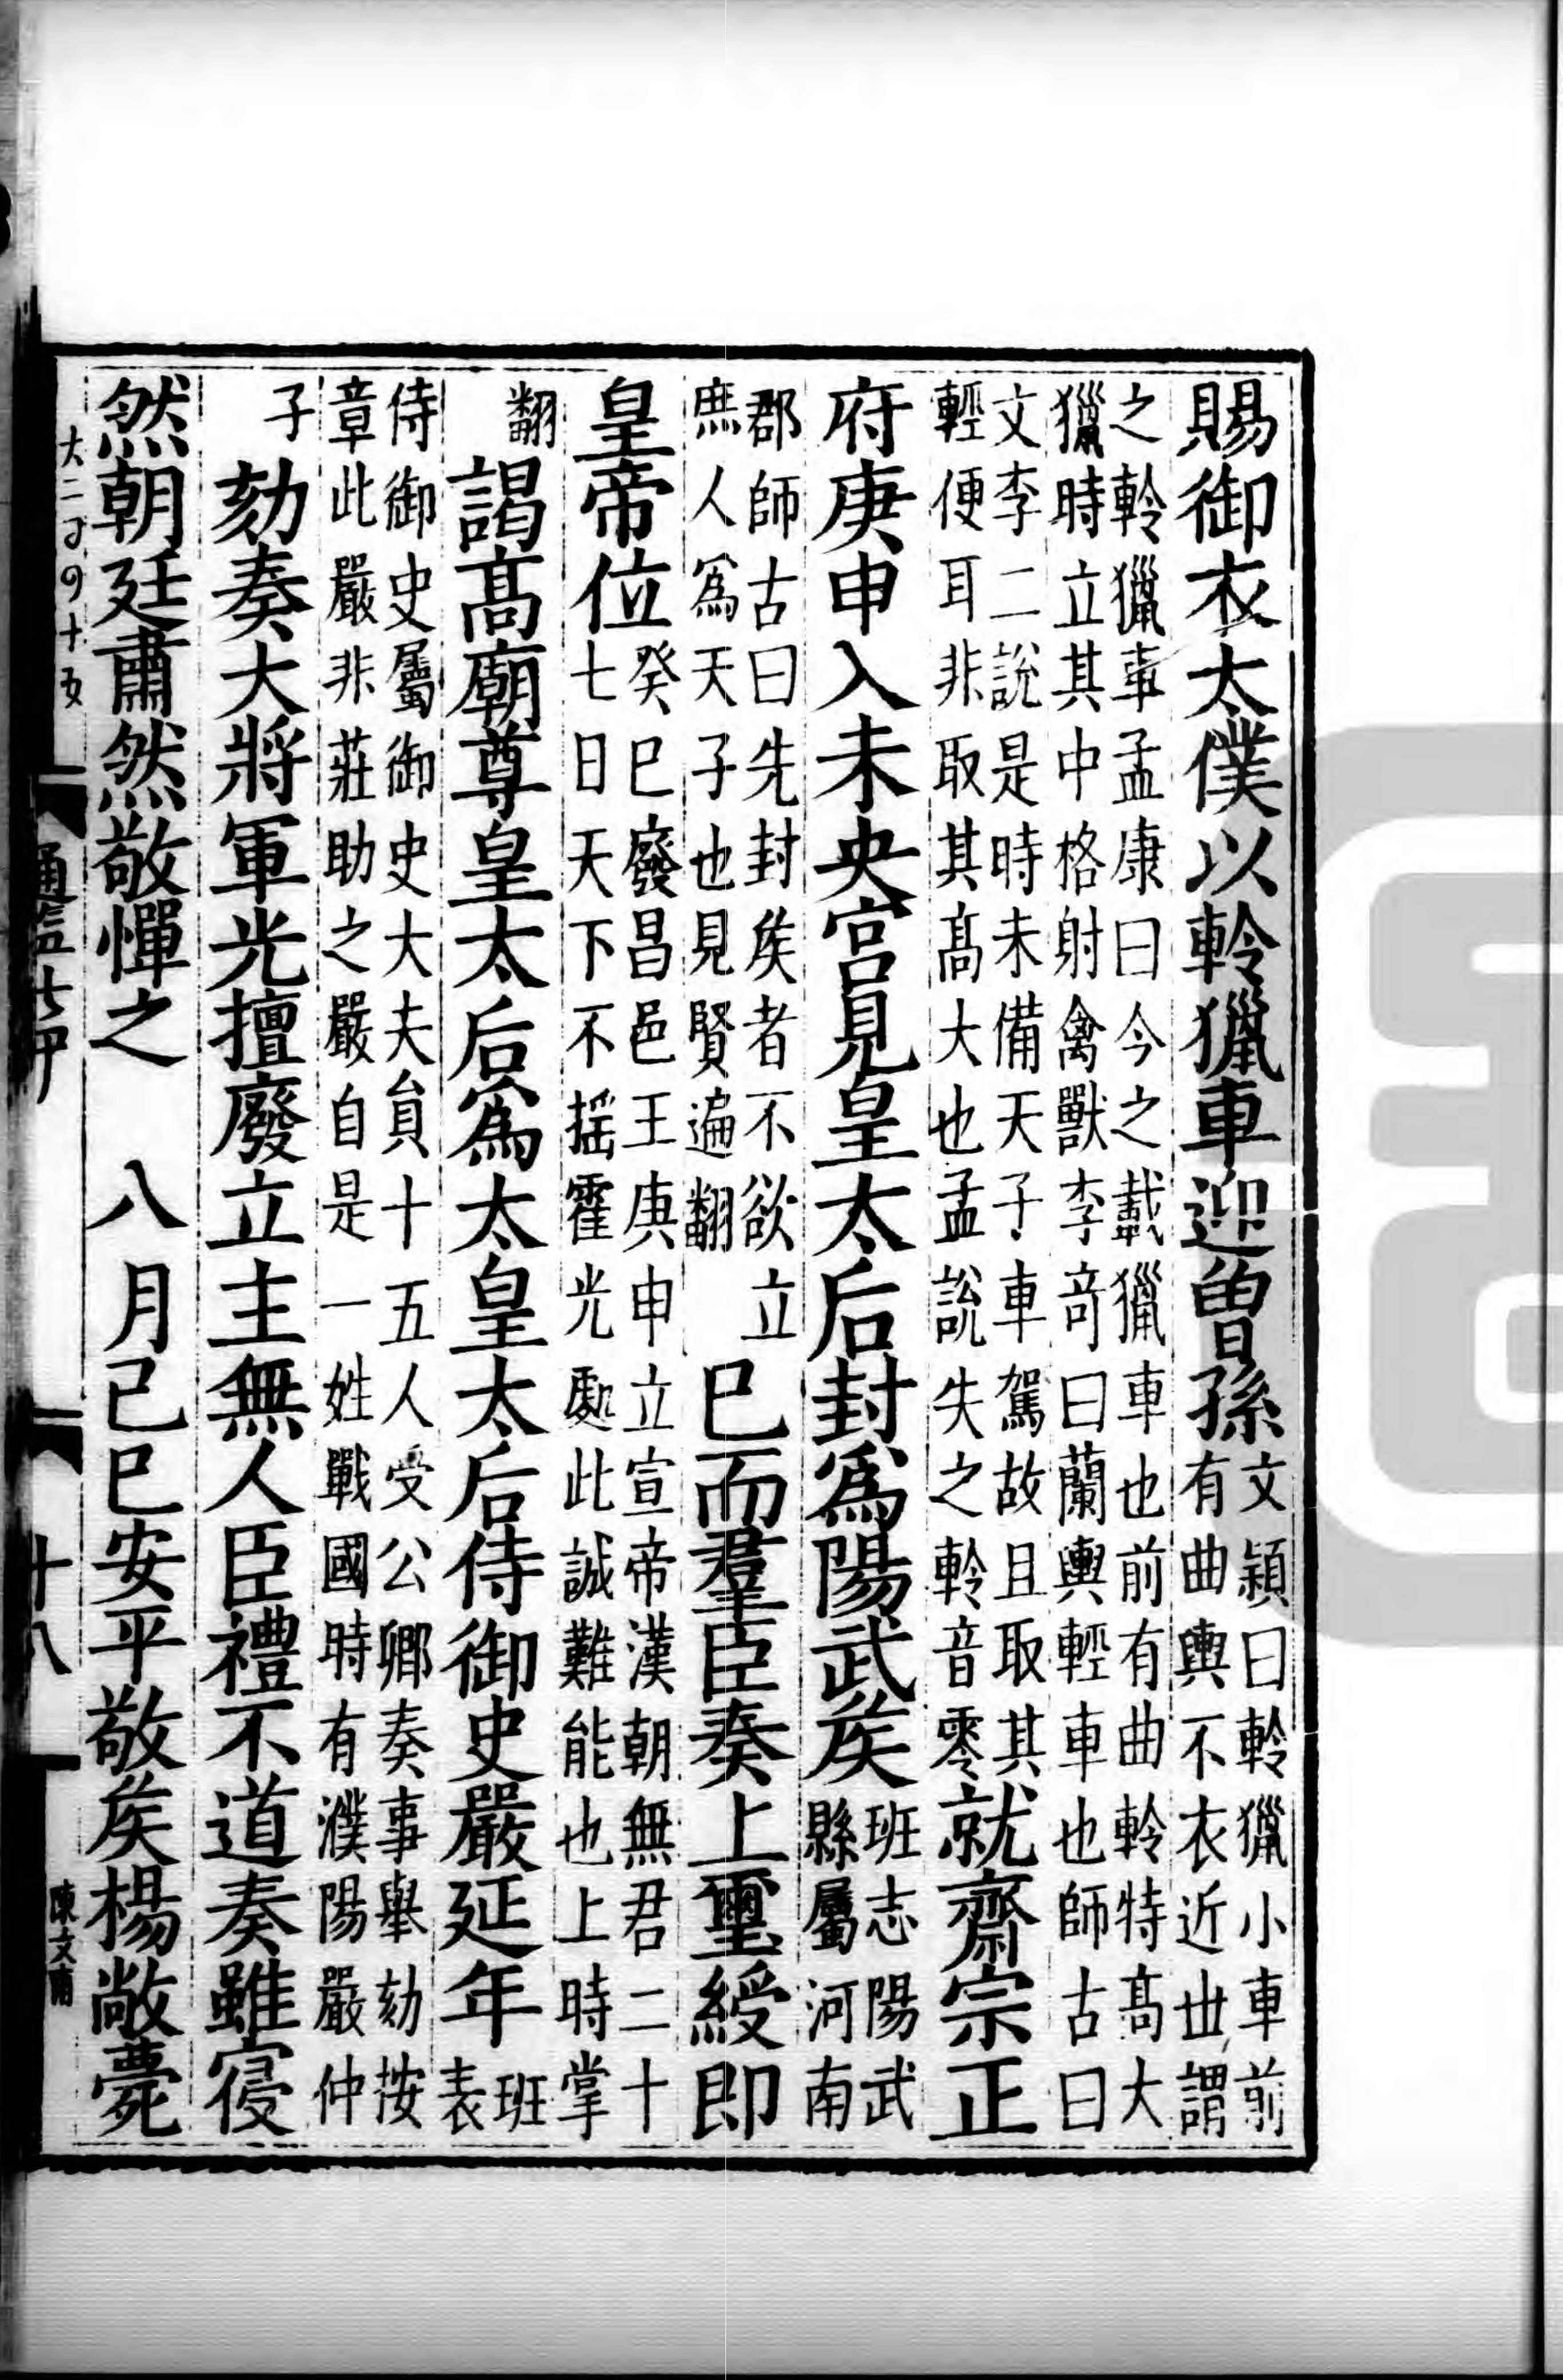 賜御衣太僕以軨獵車迎曾孫文頴曰軨獵小車前有曲輿不衣近世謂
之軨獵車孟康曰今之載獵車也前有曲軨特髙大獵時立其中格射禽獸李竒曰蘭輿輕車也師古曰
文李二說是時未備天子車駕故且取其輕便耳非取其髙大也孟說失之軨音零就齋宗正
府庚申入未央宫見皇太后封爲陽武矦班志陽武縣屬河南
郡師古曰先封矦者不欲立庶人爲天子也見賢遍翻已而羣臣奏上璽綬即
皇帝位癸巳廢昌邑王庚申立宣帝漢朝無君二十七日天下不揺霍光處此誠難能也上時掌
翻謁髙廟尊皇太后爲太皇太后侍御史嚴延年班表
侍御史屬御史大夫貟十五人受公卿奏事舉劾按章此嚴非莊助之嚴自是一姓戰國時有濮陽嚴仲
子劾奏大將軍光擅廢立主無人臣禮不道奏雖寑
然朝廷肅然敬憚之 八月己巳安平敬矦楊敞薨
通鑑 十八
陳文甫